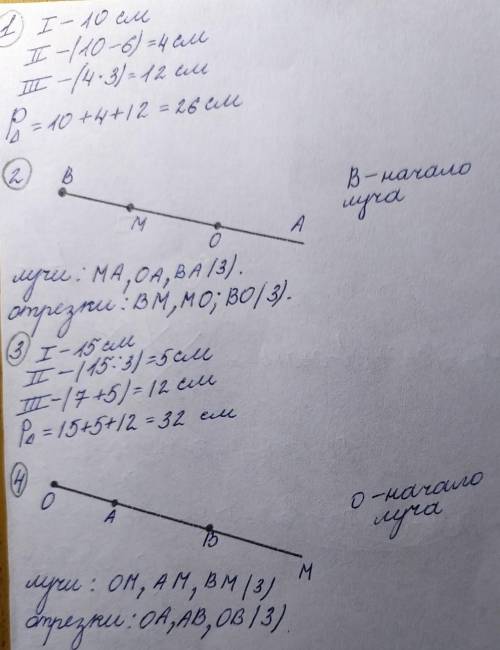 1 I - 10 см
II - (10-6) = 4 см
III - (4·3) = 12 см
P△ = 10+4+12 = 26 см
2
B
M
O
A
B - начало
луча
лучи: MA, OA, BA (3).
отрезки: BM, MO; BO (3).
3 I - 15 см
II - (15:3) = 5 см
III - (7+5) = 12 см
P△ = 15+5+12 = 32 см
4
O
A
B
M
O - начало
луча
лучи: OM, AM, BM (3)
отрезки: OA, AB, OB (3).